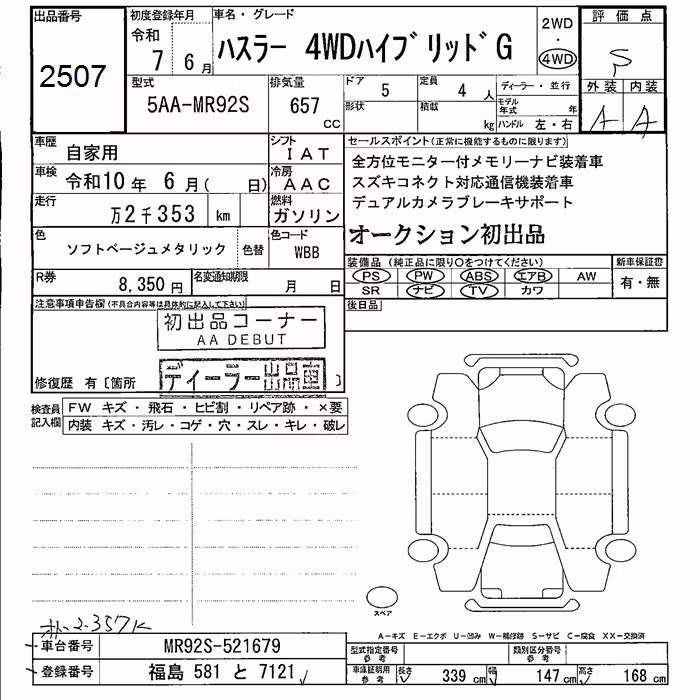 出品番号
2507
初度登録年月
令和
7 6月
車名・グレード
ハスラー 4WDハイブリッドG
2WD
・
4WD
評価点
S
外装 内装
A A
型式
5AA-MR92S
排気量
657
cc
ドア
5
定員
4 人
形状
積載
kg
ディーラー・並行
モデル年式 年
ハンドル 左・右
車歴
自家用
シフト
IAT
車検
令和10年 6月( 日)
冷房
AAC
走行
万2千353 km
燃料
ガソリン
色
ソフトベージュメタリック
色替
色コード
WBB
R券
8,350円
名変通知期限
月 日
セールスポイント(正常に機能するものに限ります)
全方位モニター付メモリーナビ装着車
スズキコネクト対応通信機装着車
デュアルカメラブレーキサポート
オークション初出品
装備品(純正品に限り○をつけてください)
PS PW ABS エアB AW
SR ナビ TV カワ
新車保証書
有・無
後日品
注意事項申告欄(不具合内容等は具体的に記入して下さい)
初出品コーナー
AA DEBUT
修復歴 有〔箇所
ディーラー出品車
〕
検査員記入欄
FW キズ・飛石・ヒビ割・リペア跡・×要
内装 キズ・汚レ・コゲ・穴・スレ・キレ・破レ
スペア
A-キズ E-エクボ U-凹み W-補修跡 S-サビ C-腐食 XX-交換済
2357K
車台番号
MR92S-521679
登録番号
福島 581 と 7121
型式指定番号
参考
類別区分番号
参考
車庫証明用
参考
長さ 339 cm
幅 147 cm
高さ 168 cm